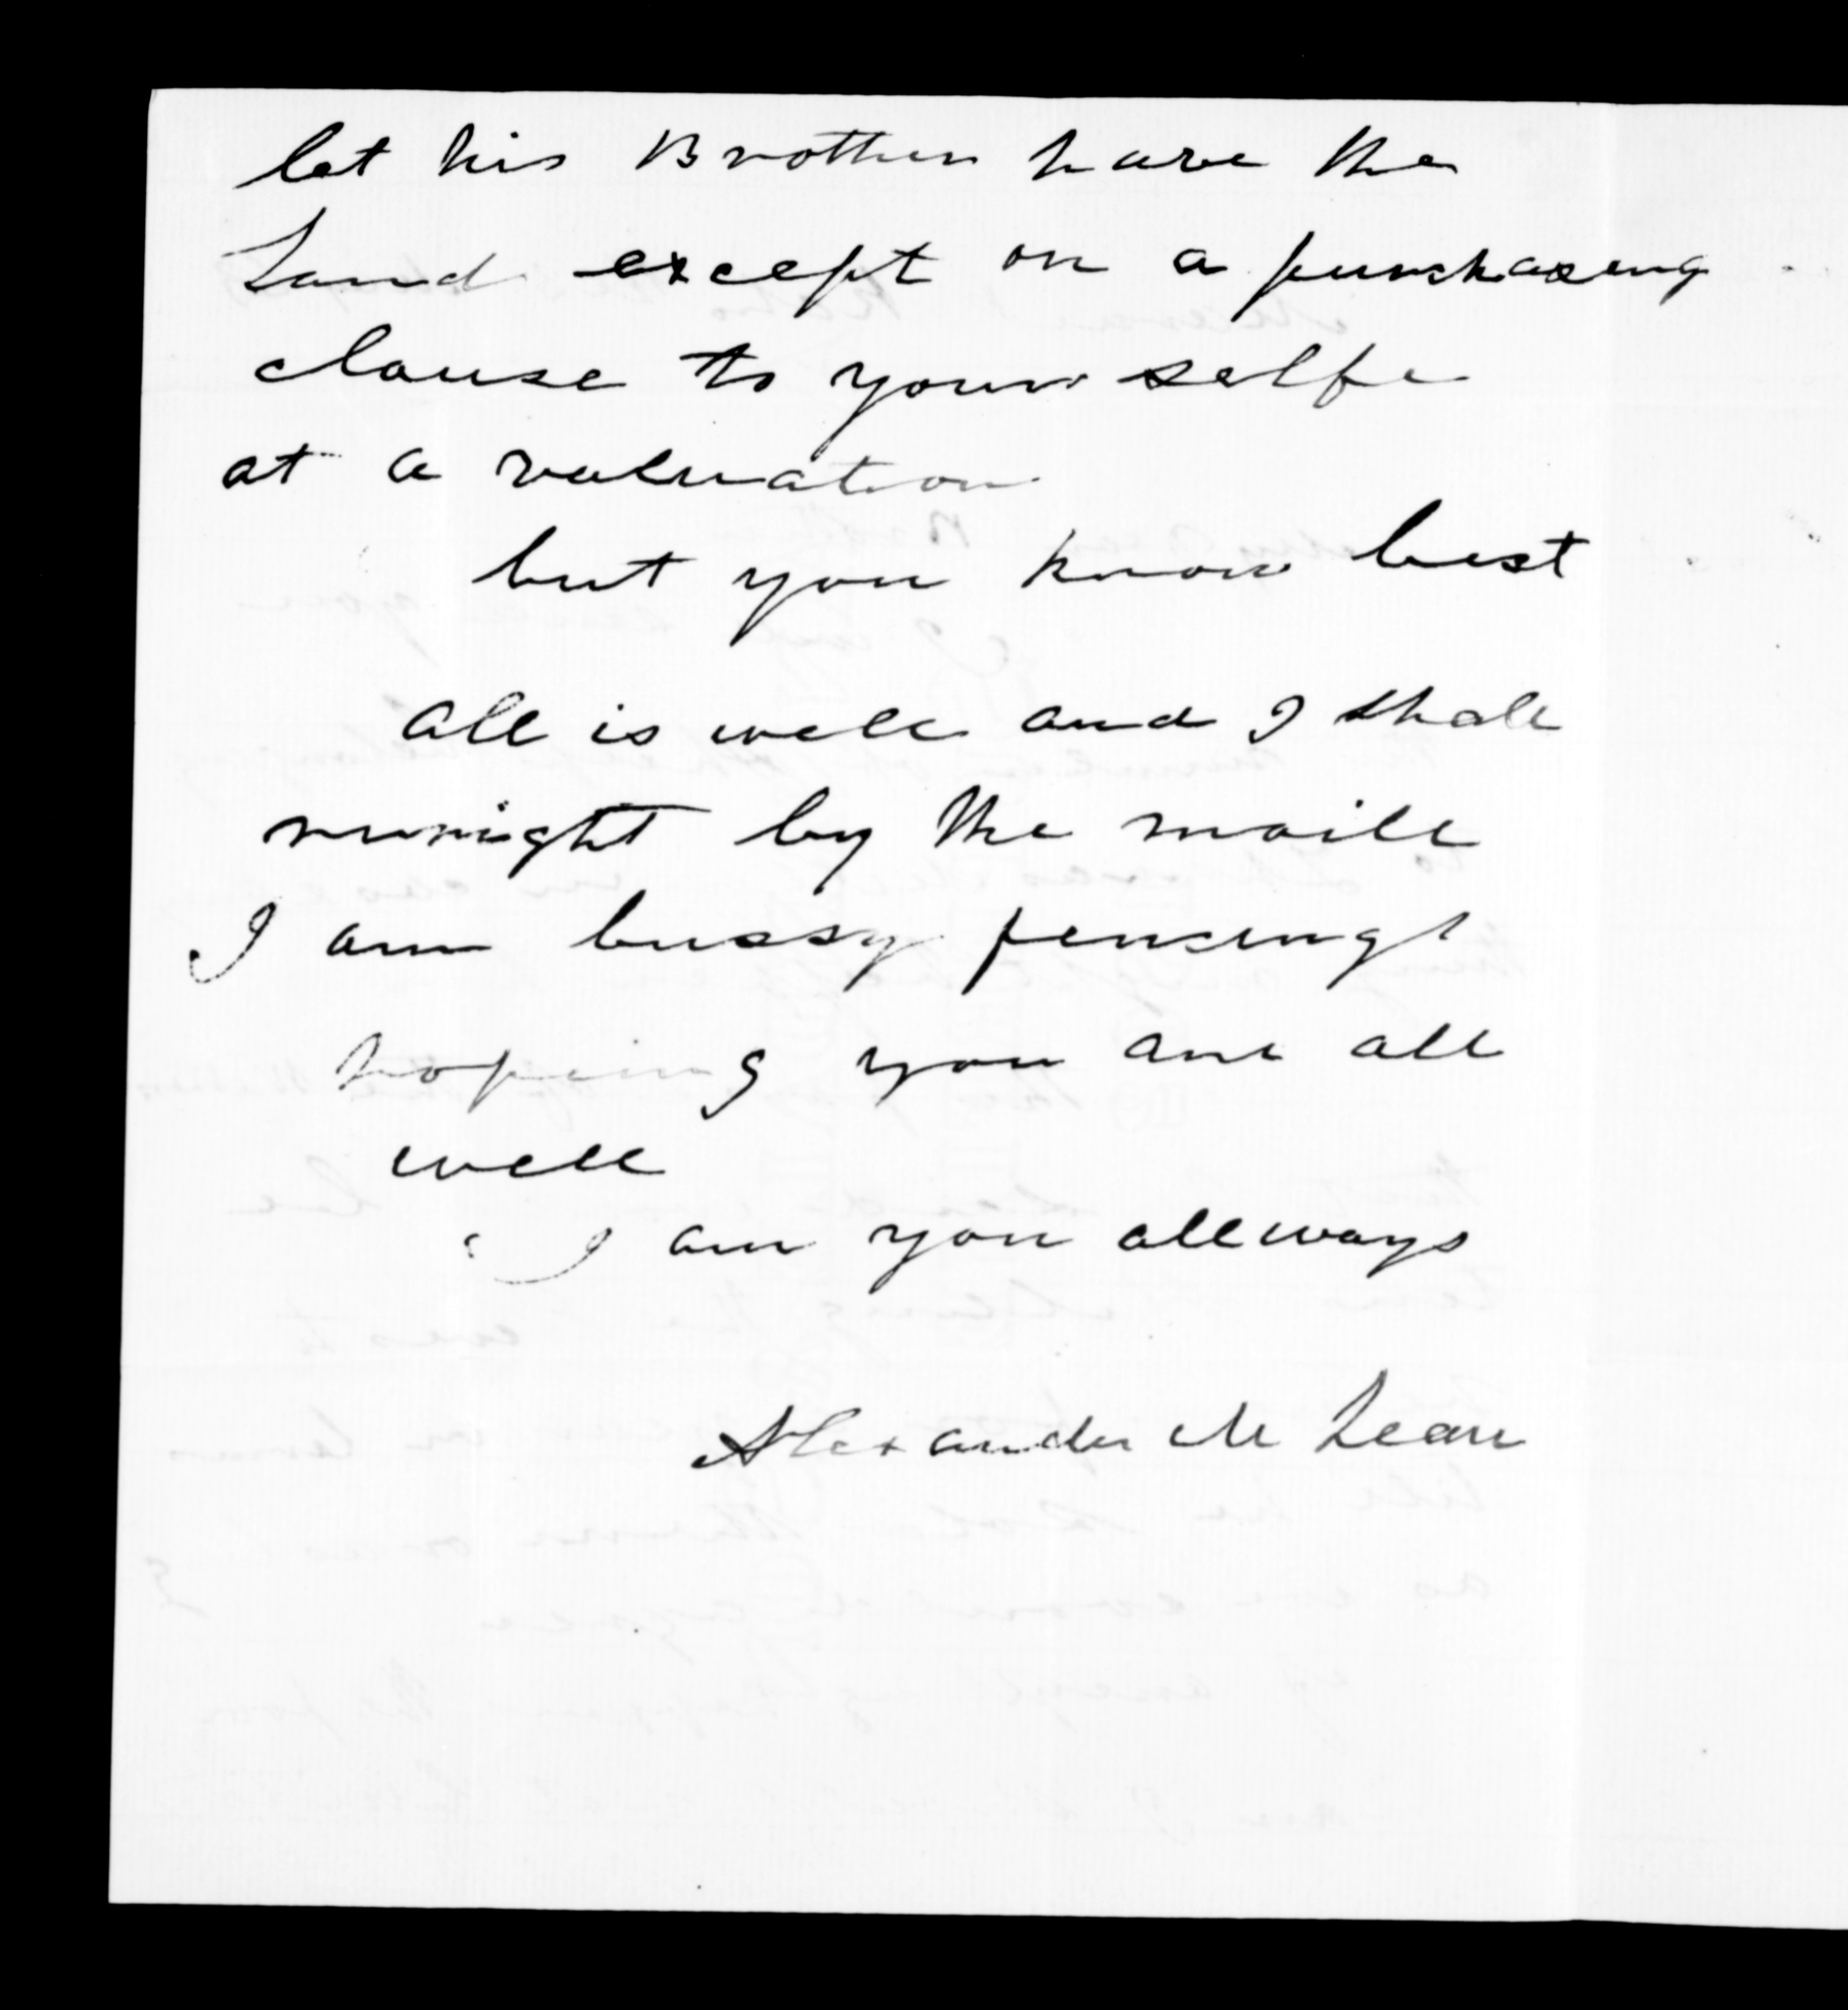 let his Brother have the
Land except on a purchaseng
clause to your selfe
at a valuation
but you know best
all is well and I shall
by the maill
I am bussy fencing
hoping you are all
well
I am you allways
Alexander McLean